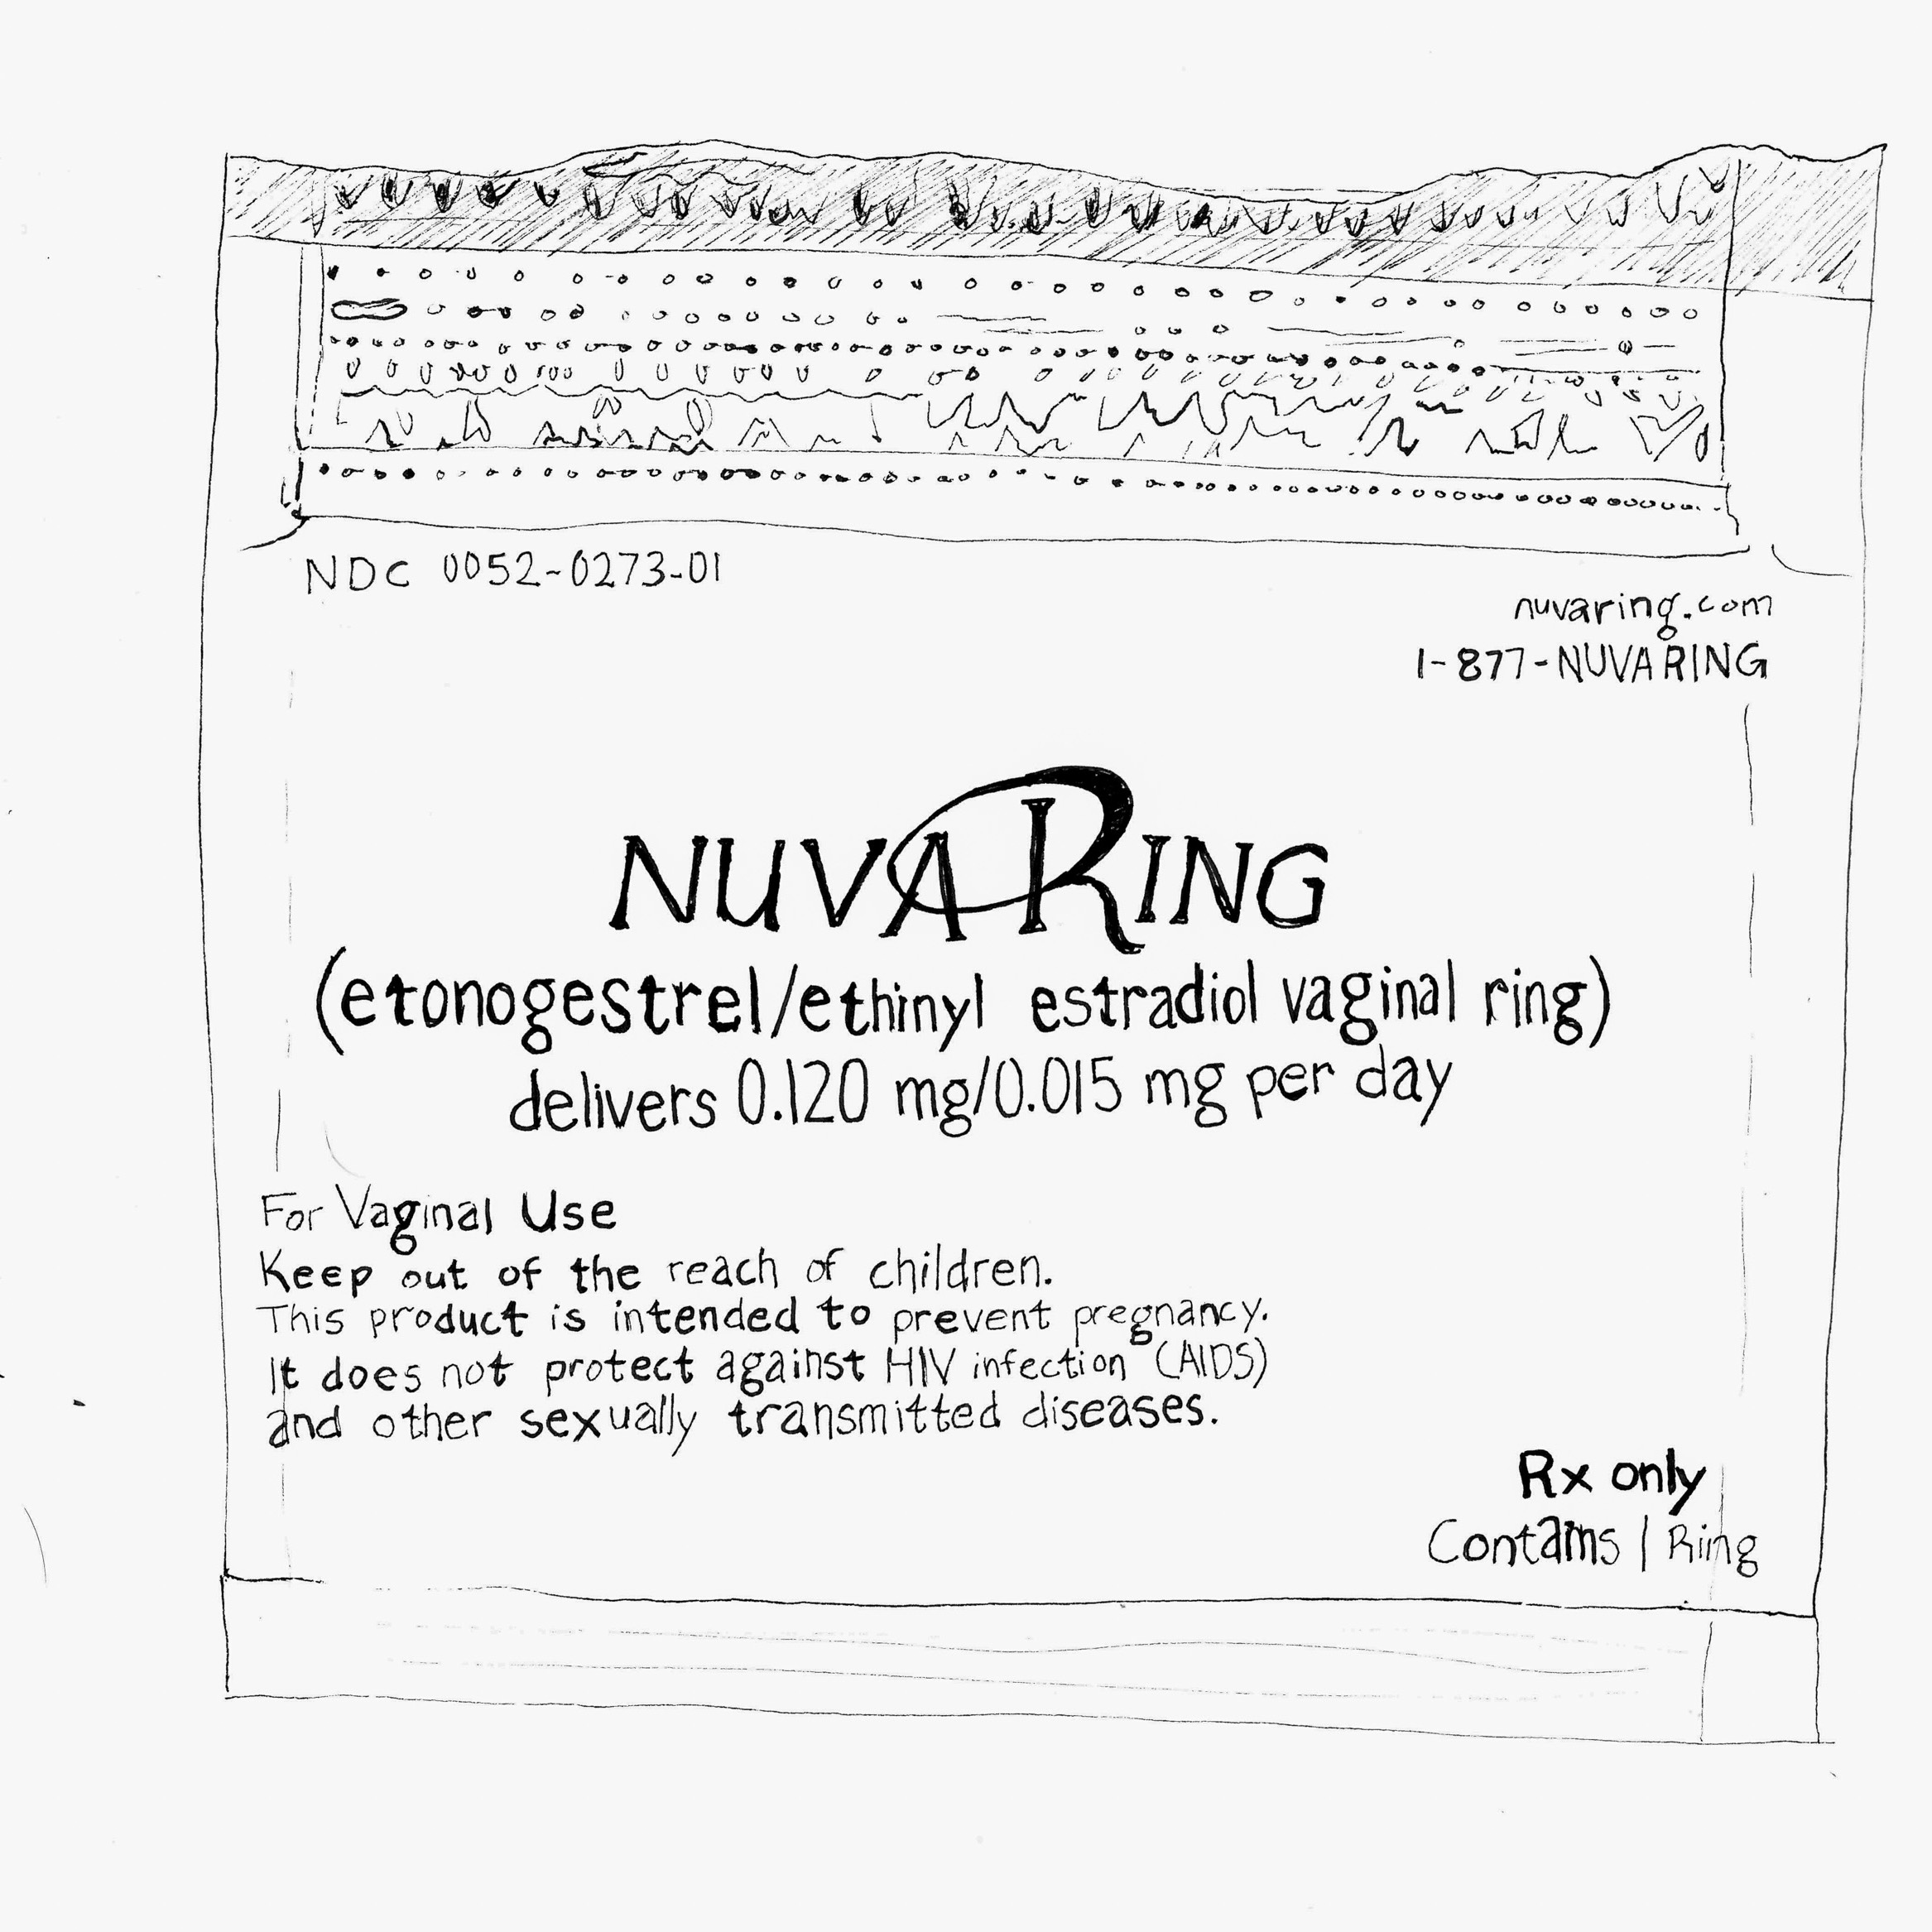 NDC 0052-0273-01
nuvaring.com
1-877-NUVARING
NUVARING
(etonogestrel/ethinyl estradiol vaginal ring)
delivers 0.120 mg/0.015 mg per day
For Vaginal Use
Keep out of the reach of children.
This product is intended to prevent pregnancy.
It does not protect against HIV infection (AIDS)
and other sexually transmitted diseases.
Rx only
Contains 1 Ring